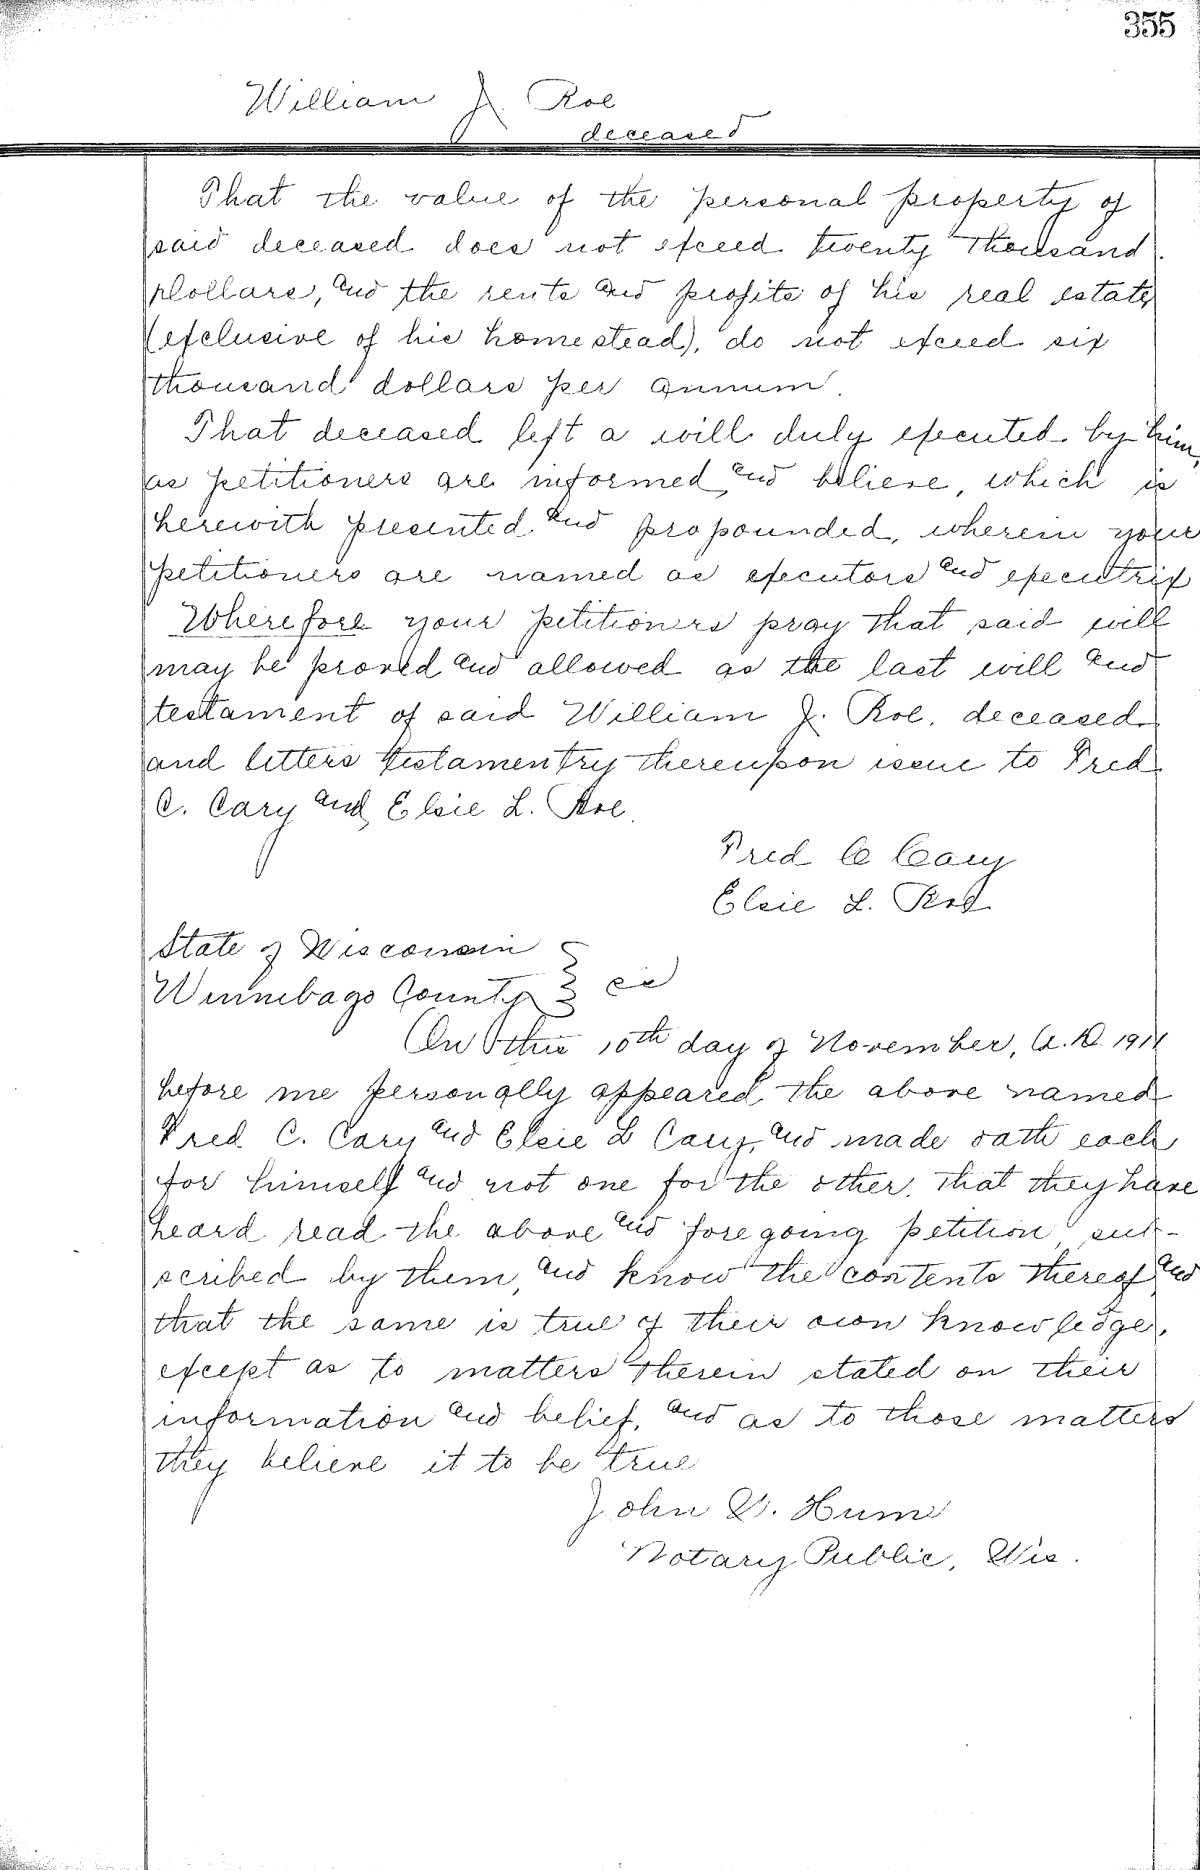 355
William J. Roe
deceased
That the value of the personal property of
said deceased does not exceed twenty thousand
dollars, and the rents and profits of his real estate,
(exclusive of his homestead), do not exceed six
thousand dollars per annum.
That deceased left a will duly executed by him,
as petitioners are informed and believe, which is
herewith presented and propounded, wherein your
petitioners are named as executors and executrix
Wherefore your petitioners pray that said will
may be proved and allowed as the last will and
testament of said William J. Roe, deceased
and letters testamentry thereupon issue to Fred
C. Cary and Elsie L. Roe.
Fred C Cary
Elsie L. Roe
State of Wisconsin
Winnebago County } ss
On this 10th day of November, A.D. 1911
before me personally appeared the above named
Fred C. Cary and Elsie L Cary, and made oath each
for himself and not one for the other, that they have
heard read the above and foregoing petition sub-
scribed by them, and know the contents thereof and
that the same is true of their own knowledge,
except as to matters therein stated on their
information and belief, and as to those matters
they believe it to be true
John D. Hume
Notary Public, Wis.